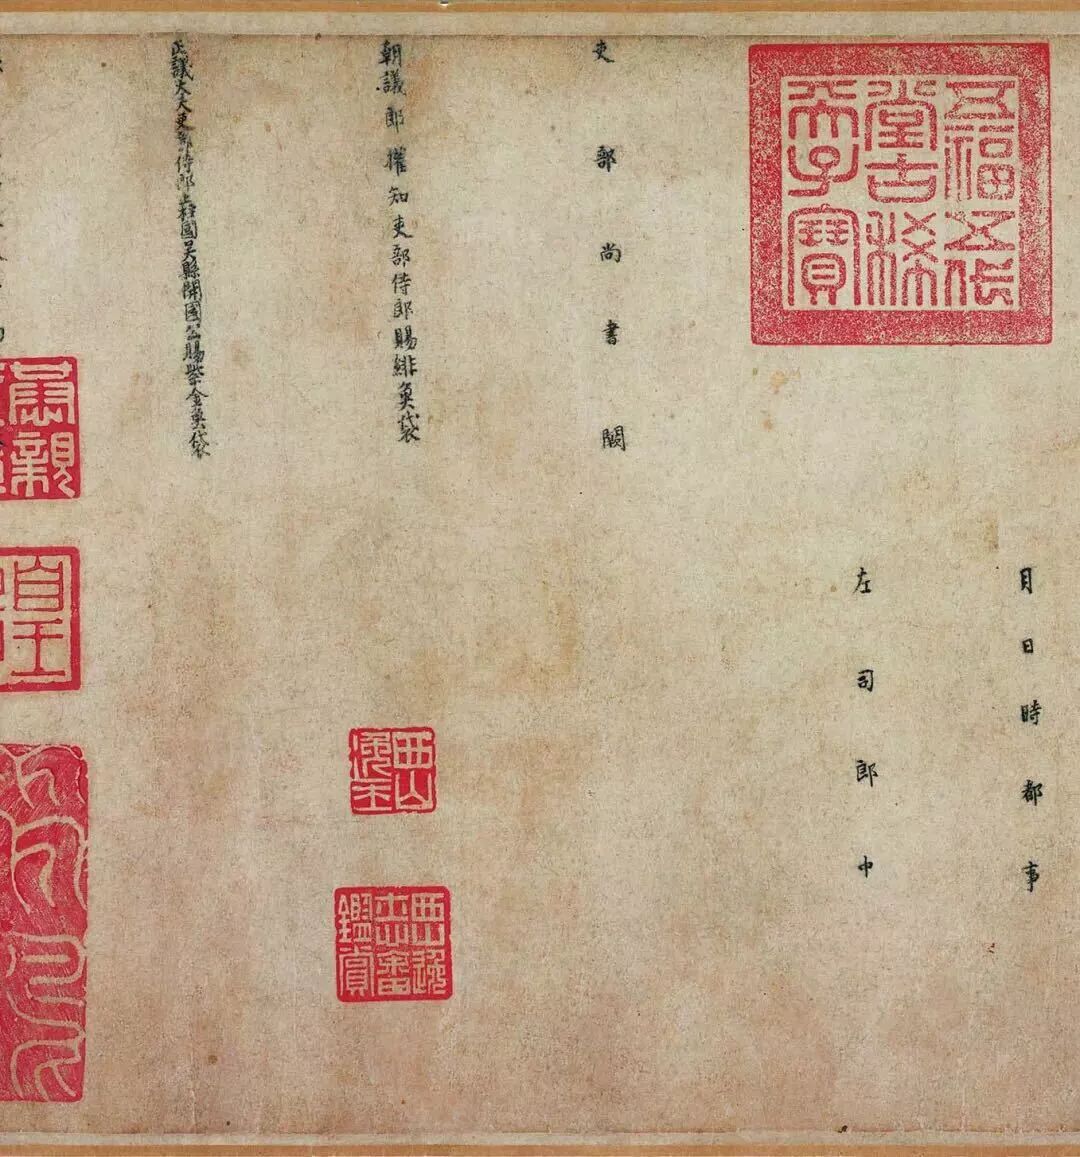 五福五代
堂古稀
天子寶
月日時都事
左司郎中
吏部尚書闕
朝議郎權知吏部侍郎賜緋魚袋
正議大夫吏部侍郎上柱國吳縣開國公賜紫金魚袋
肅親